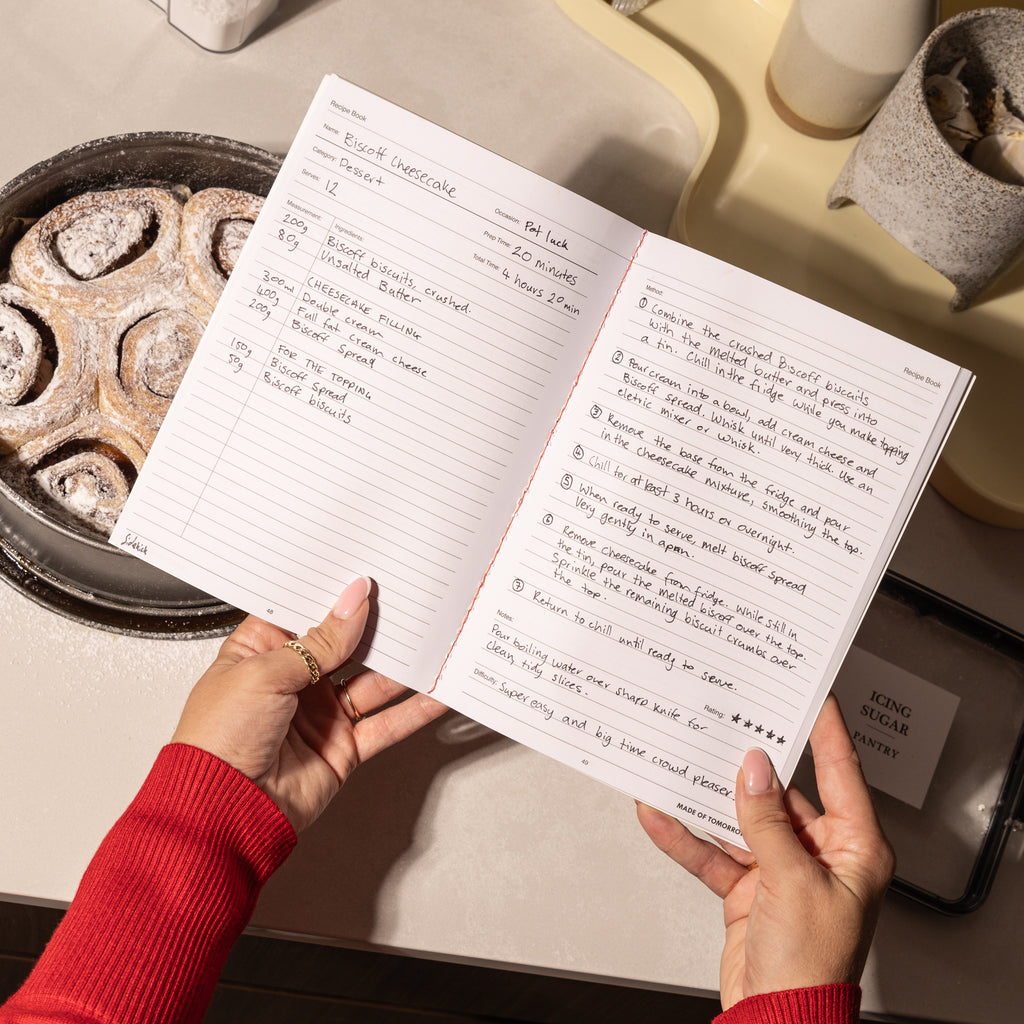 Recipe Book
Name: Biscoff Cheesecake
Category: Dessert
Serves: 12
Occasion: Pot luck
Prep Time: 20 minutes
Total Time: 4 hours 20 min
Measurement: Ingredients:
200g Biscoff biscuits, crushed.
80g Unsalted Butter
CHEESECAKE FILLING
300ml Double cream
400g Full fat cream cheese
200g Biscoff Spread
FOR THE TOPPING
150g Biscoff Spread
50g Biscoff biscuits
Sidekick
48
Recipe Book
Method:
① Combine the crushed Biscoff biscuits
with the melted butter and press into
a tin. Chill in the fridge while you make topping
② Pour cream into a bowl, add cream cheese and
Biscoff spread. Whisk until very thick. Use an
eletric mixer or whisk.
③ Remove the base from the fridge and pour
in the cheesecake mixture, smoothing the top.
④ Chill for at least 3 hours or overnight.
⑤ When ready to serve, melt biscoff spread
Very gently in a pan.
⑥ Remove cheesecake from fridge. While still in
the tin, pour the melted biscoff over the top.
Sprinkle the remaining biscuit crumbs over
the top.
⑦ Return to chill until ready to serve.
Notes:
Pour boiling water over sharp knife for
clean, tidy slices.
Rating: ★★★★★
Difficulty: Super easy and big time crowd pleaser.
49
MADE OF TOMORRO
ICING
SUGAR
PANTRY